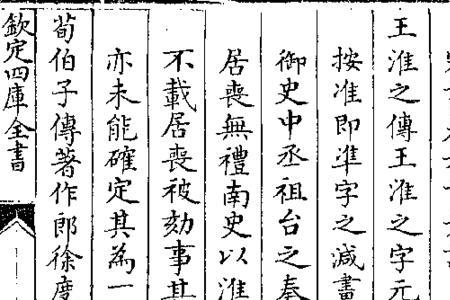 王淮之傳王淮之字元
按准即準字之減畫
御史中丞祖台之奏
居喪無禮南史以淮
不載居喪被劾事其
亦未能確定其為一
荀伯子傳著作郎徐
欽定四庫全書